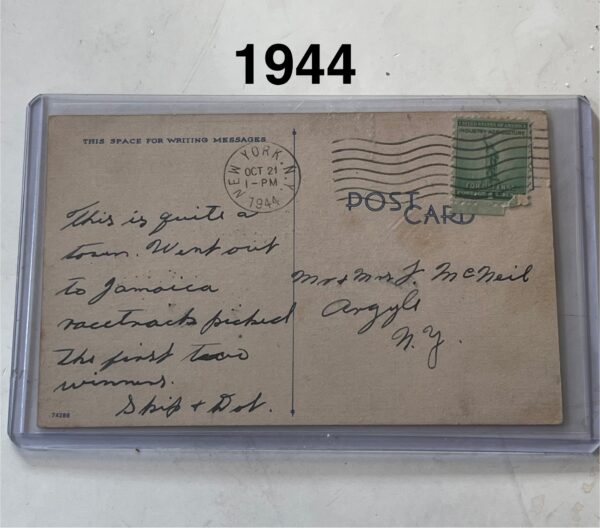 1944
THIS SPACE FOR WRITING MESSAGES
NEW YORK, N.Y.
OCT 21
1 - PM
1944
UNITED STATES OF AMERICA
INDUSTRY AGRICULTURE
FOR DEFENSE
POST
CARD
This is quite a
town. Went out
to Jamaica
racetrack picked
the first two
winners.
Skip + Dot.
Mr + Mrs J. McNeil
Argyle
N.Y.
74288